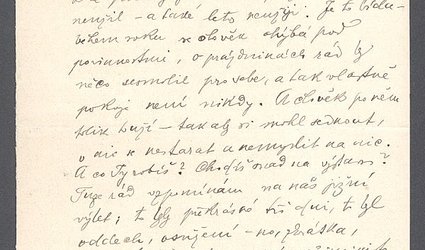 neužil – a také leto neužiji. Je to bída:
během roku se člověk ohýbá pod
povinnostmi, o prázdninách rád by
něco smolil pro sebe, a tak vlastně
pokoje není nikdy. A člověk po něm
tolik touží – tak aby si mohl sednout,
o nic se nestarat a nemyslit na nic.
A co Ty robíš? Chodíš snad na výstavu?
Tuze rád vzpomínám na náš jižní
výlet; to byly překrásné dni, to byl
oddech, osvěžení – no, zkrátka,